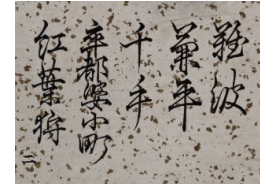 難波
兼平
千手
卒都婆小町
紅葉狩
二